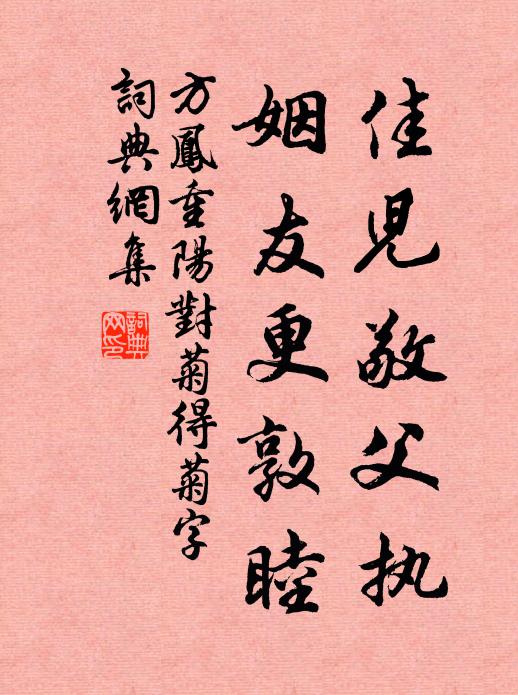 佳児敬父执
姻友更敦睦
方鳳重陽對菊得菊字
詞典網集
詞典網印